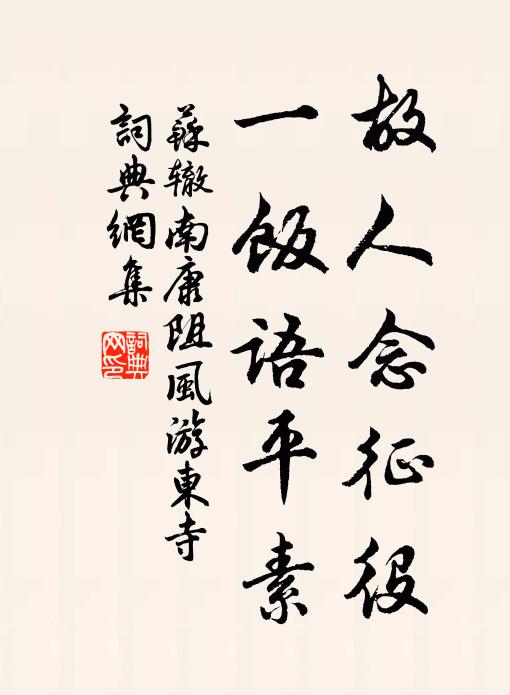 故人念征役
一飯語平素
蘇辙南康阻風游東寺
詞典網集
詞典網印